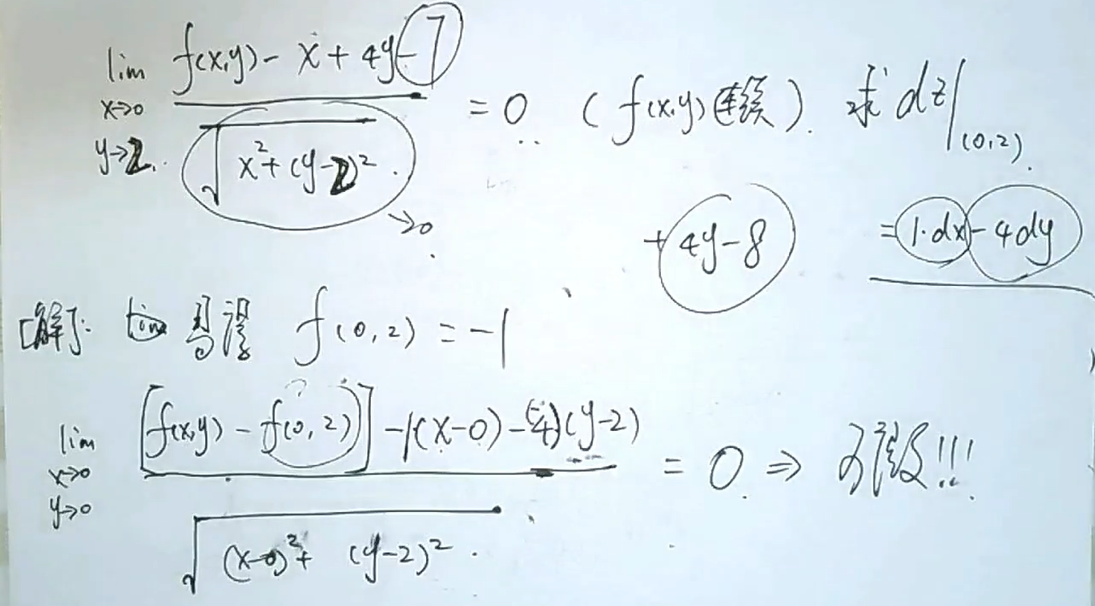 lim x→0 y→2 (f(x,y) - x + 4y - 7) / √(x²+(y-2)²) = 0 (f(x,y)连续). 求 dz|(0,2).
→0 + 4y-8 = 1·dx - 4dy
[解]: 易得 f(0,2) = -1
lim x→0 y→0 ([f(x,y) - f(0,2)] - 1(x-0) - (-4)(y-2)) / √((x-0)²+(y-2)²) = 0 ⇒ 可微!!!